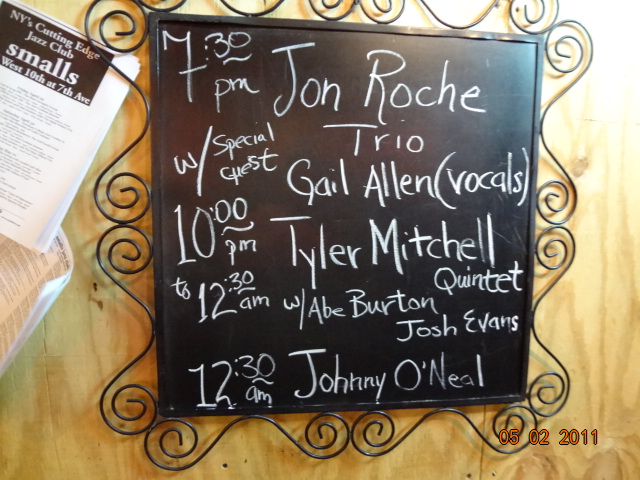 NY's Cutting Edge
Jazz Club
smalls
West 10th at 7th Ave
7:30 pm Jon Roche
Trio
w/ Special Guest Gail Allen (vocals)
10:00 pm Tyler Mitchell
Quintet
to 12:30 am w/ Abe Burton
Josh Evans
12:30 am Johnny O'Neal
05 02 2011